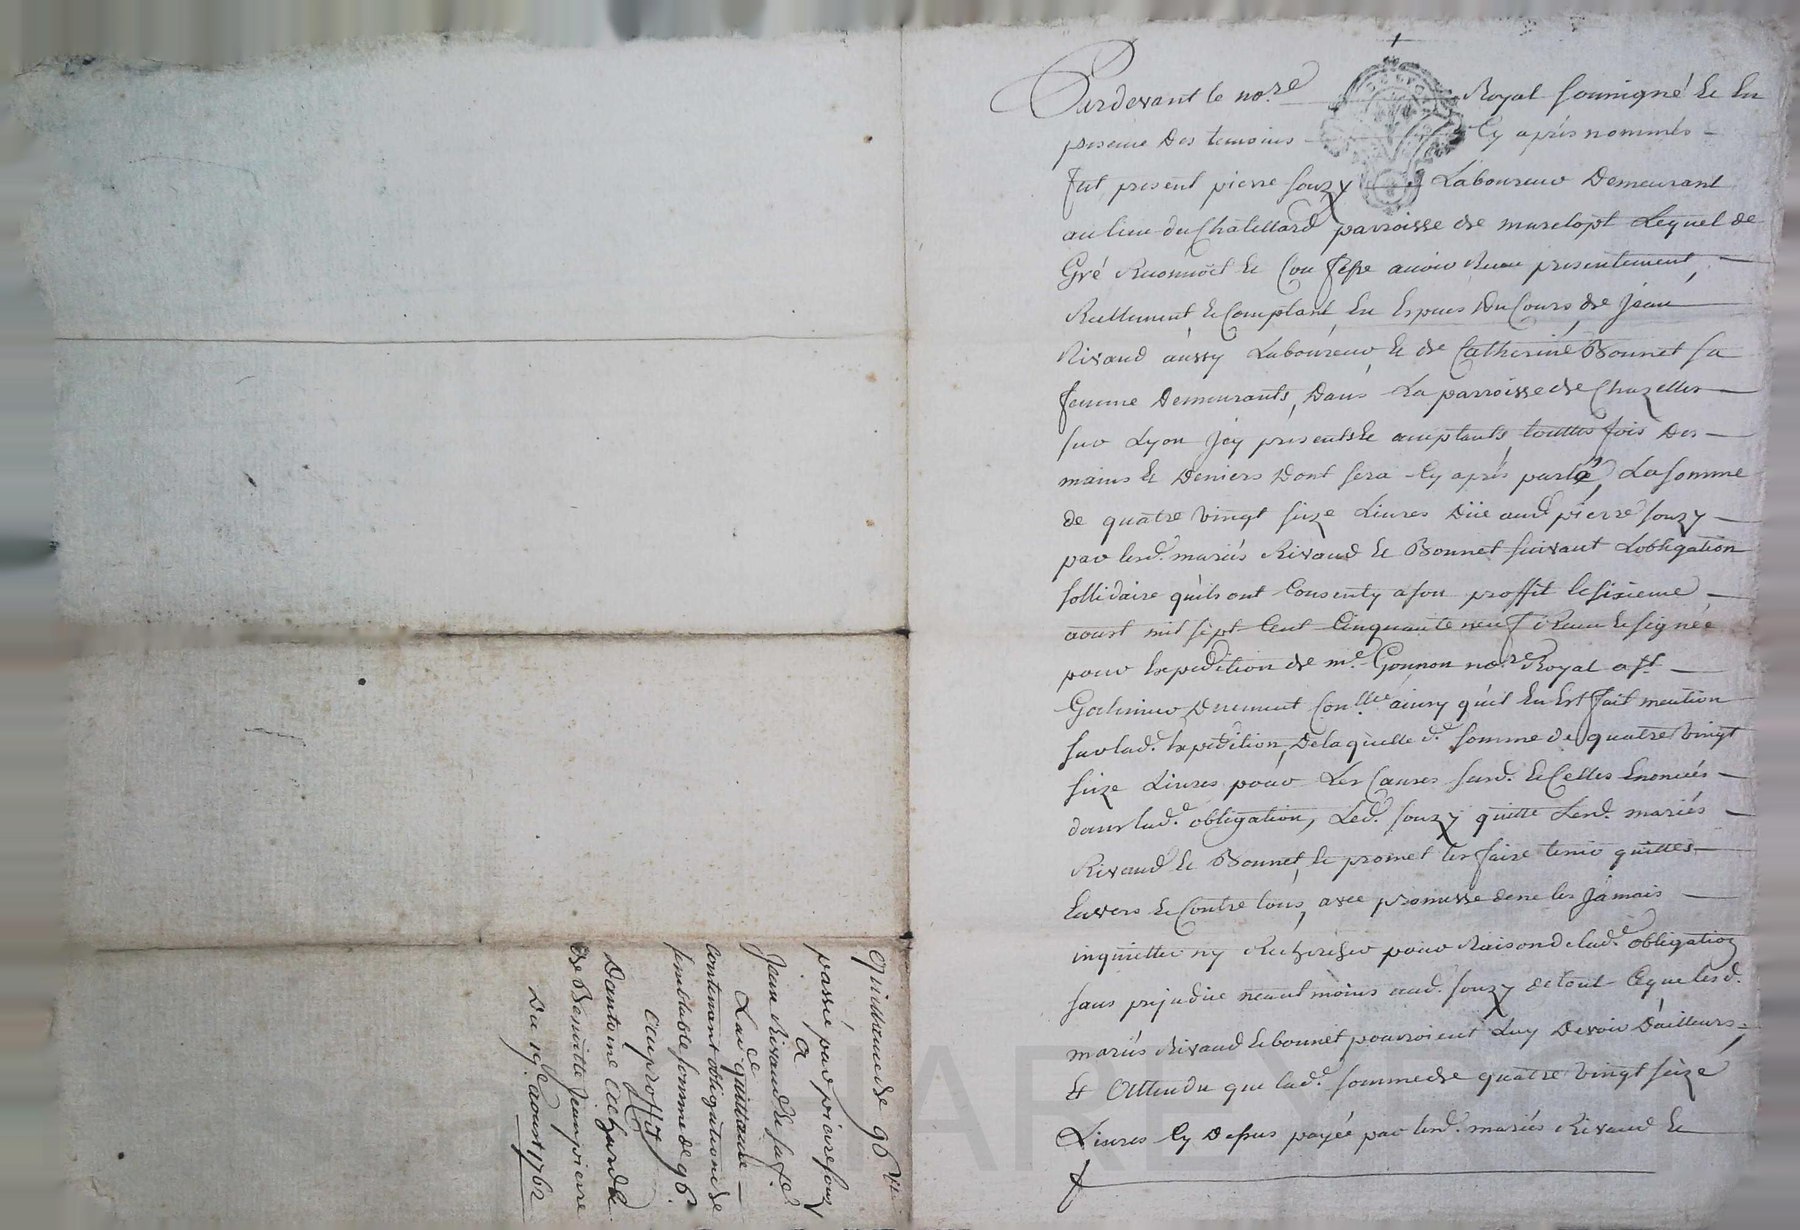 Pardevant le no.re Royal sousigné et en
presence des temoins cy aprés nommés
fut present pierre souzy Laboureur demeurant
au lieu du Chatellard parroisse de marclopt Lequel de
Gré Reconnoit et Confesse avoir Receu presentement
Reellement et Comptant en Especes du Cours de jean
Rivaud aussy Laboureur et de Catherine Bonnet sa
femme demeurants dans La parroisse de Chazelles
sur Lyon jcy presents et acceptants, touttes fois des
mains et deniers dont sera cy aprés parlé, La somme
de quatre vingt seize Livres düe aud. pierre souzy
par lesd. mariés Rivaud et Bonnet suivant Lobligation
sollidaire quils ont Consenty a son proffit le sixieme
aoust mil sept Cent Cinquante neuf Receu et signée
pour Expedition de m.e Gonnon no.re Royal a s.t
Galmier duement Con.llée ainsy qu'il En Est fait mention
sur lad.e Expedition, de laquelle d.e somme de quatre vingt
seize Livres pour Les Causes susd. et Celles Enoncées
dans lad.e obligation, Led. souzy quitte Lesd. mariés
Rivaud et Bonnet, et promet les faire tenir quittes
Envers et Contre tous, avec promesse de ne les jamais
inquietter ny Rechercher pour Raison de lad.e obligation
sans prejudice neantmoins aud. souzy de tout Ce que lesd.
mariés Rivaud et bonnet pourroient Luy devoir d'ailleurs,
Et Attendu que lad.e somme de quatre vingt seize
Livres Cy dessus payée par lesd. mariés Rivaud et
Quittance de 96
passée par pierre souzy
a
Jean Rivaud et sa fe.
Lad.e quittance
contenant obligation de
semblable somme de 96
au proffit
Dantoine
de Benoitte Jeanpierre
Du 19.e aoust 1762